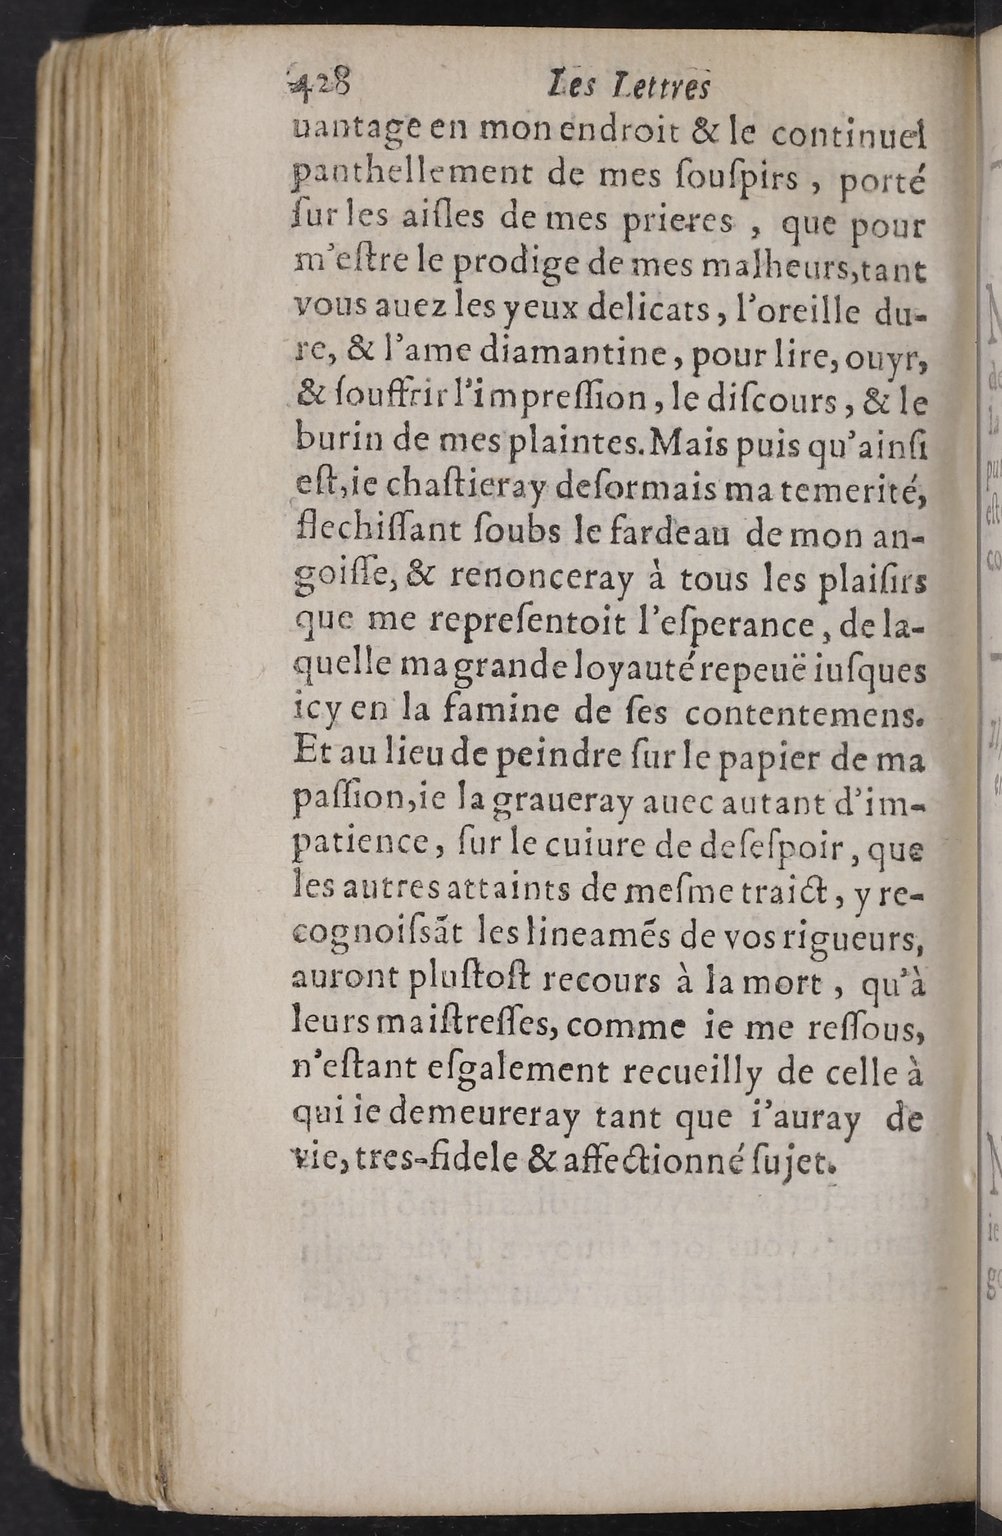 428 Les Lettres
uantage en mon endroit & le continuel
panthellement de mes ſouſpirs , porté
ſur les aiſles de mes prieres , que pour
m'eſtre le prodige de mes malheurs,tant
vous auez les yeux delicats , l'oreille du-
re, & l'ame diamantine , pour lire, ouyr,
& ſouffrir l'impreſſion , le diſcours , & le
burin de mes plaintes. Mais puis qu'ainſi
eſt,ie chaſtieray deſormais ma temerité,
flechiſſant ſoubs le fardeau de mon an-
goiſſe, & renonceray à tous les plaiſirs
que me repreſentoit l'eſperance , de la-
quelle ma grande loyauté repeuë iuſques
icy en la famine de ſes contentemens.
Et au lieu de peindre ſur le papier de ma
paſſion,ie la graueray auec autant d'im-
patience , ſur le cuiure de deſeſpoir , que
les autres attaints de meſme traict , y re-
cognoiſsãt les lineamẽs de vos rigueurs,
auront pluſtoſt recours à la mort , qu'à
leurs maiſtreſſes, comme ie me reſſous,
n'eſtant eſgalement recueilly de celle à
qui ie demeureray tant que i'auray de
vie, tres-fidele & affectionné ſujet.